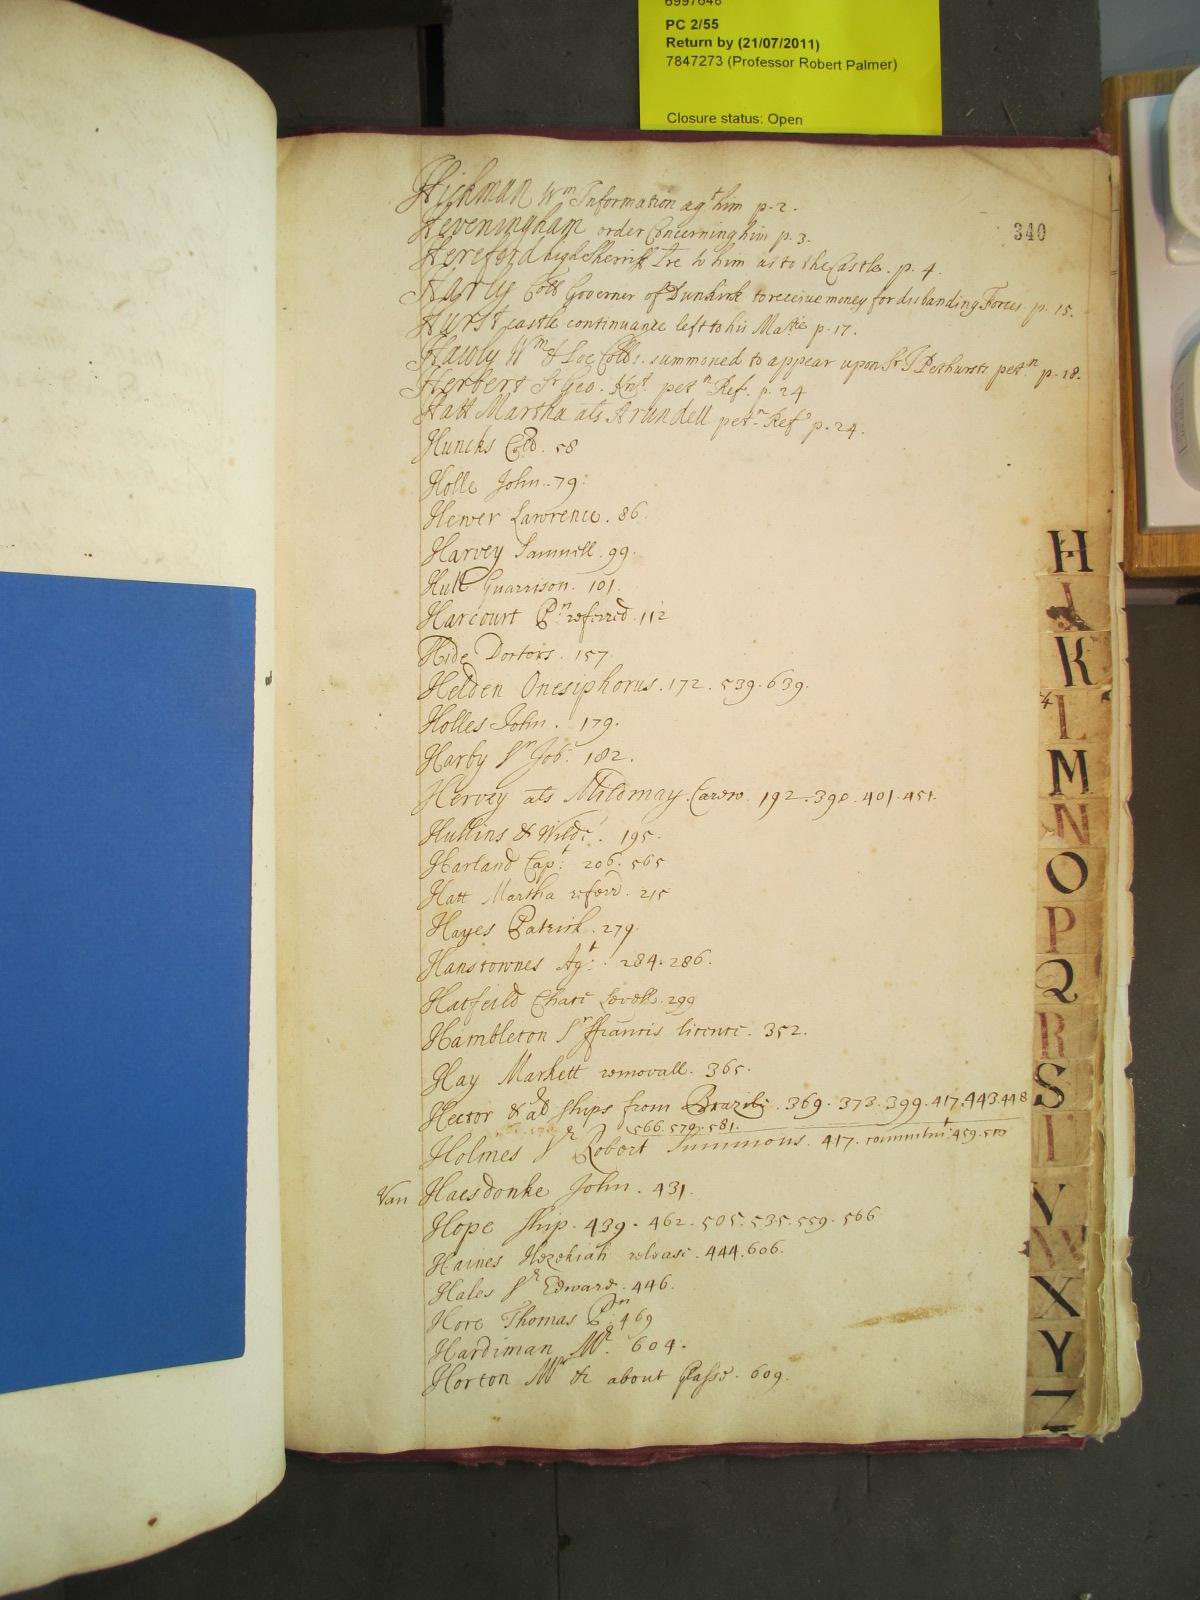 6997648
PC 2/55
Return by (21/07/2011)
7847273 (Professor Robert Palmer)
Closure status: Open
340
Hickman Wm Information agt him p. 2.
Heveningham order Concerning him p. 3.
Hereford high Sherriff Lre to him as to the Castle. p. 4.
Harly Coll Governer of Dunkirk to receive money for disbanding Forces. p. 15.
Hurst castle continuance left to his Matie p. 17.
Hawly Wm & Lee Colls. summoned to appear upon Sr Pethursts petn p. 18.
Herbert Sr Geo. Knt. petn Ref. p. 24
Hatt Martha als Arundell petn Ref p. 24.
Huncks Coll. 58
Holle John. 79.
Hewer Lawrence. 86.
Harvey Samuell. 99.
Hull Guarrison. 101.
Harcourt Pn referred. 112
Hide Doctors. 157.
Helden Onesiphorus. 172. 539. 639.
Holles John. 179.
Harby Sr Job: 182.
Hervey als Mildmay Carew. 192. 390. 401. 451.
Hullins & Wilde. 195.
Harland Capt: 206. 565
Hatt Martha referd. 215
Hayes Patrick. 279.
Hanstownes Agt: 284. 286.
Hatfeild Charles Levells. 299
Hambleton Sr ffrancis licence. 352.
Hay Markett removall. 365.
Hector & ad ships from Brazile. 369. 373. 399. 417. 443. 448
566. 579. 581.
Holmes Sr Robert Summons. 417. committmt 459. 510
Van Haesdonke John. 431.
Hope ship. 439. 462. 505. 535. 559. 566
Haines Hezekiah release. 444. 606.
Hales Sr Edward. 446.
Hore Thomas Pn. 469
Hardiman Mr. 604.
Horton Mr & about Passe. 609.
H
I
K
L
M
N
O
P
Q
R
S
T
V
W
X
Y
Z